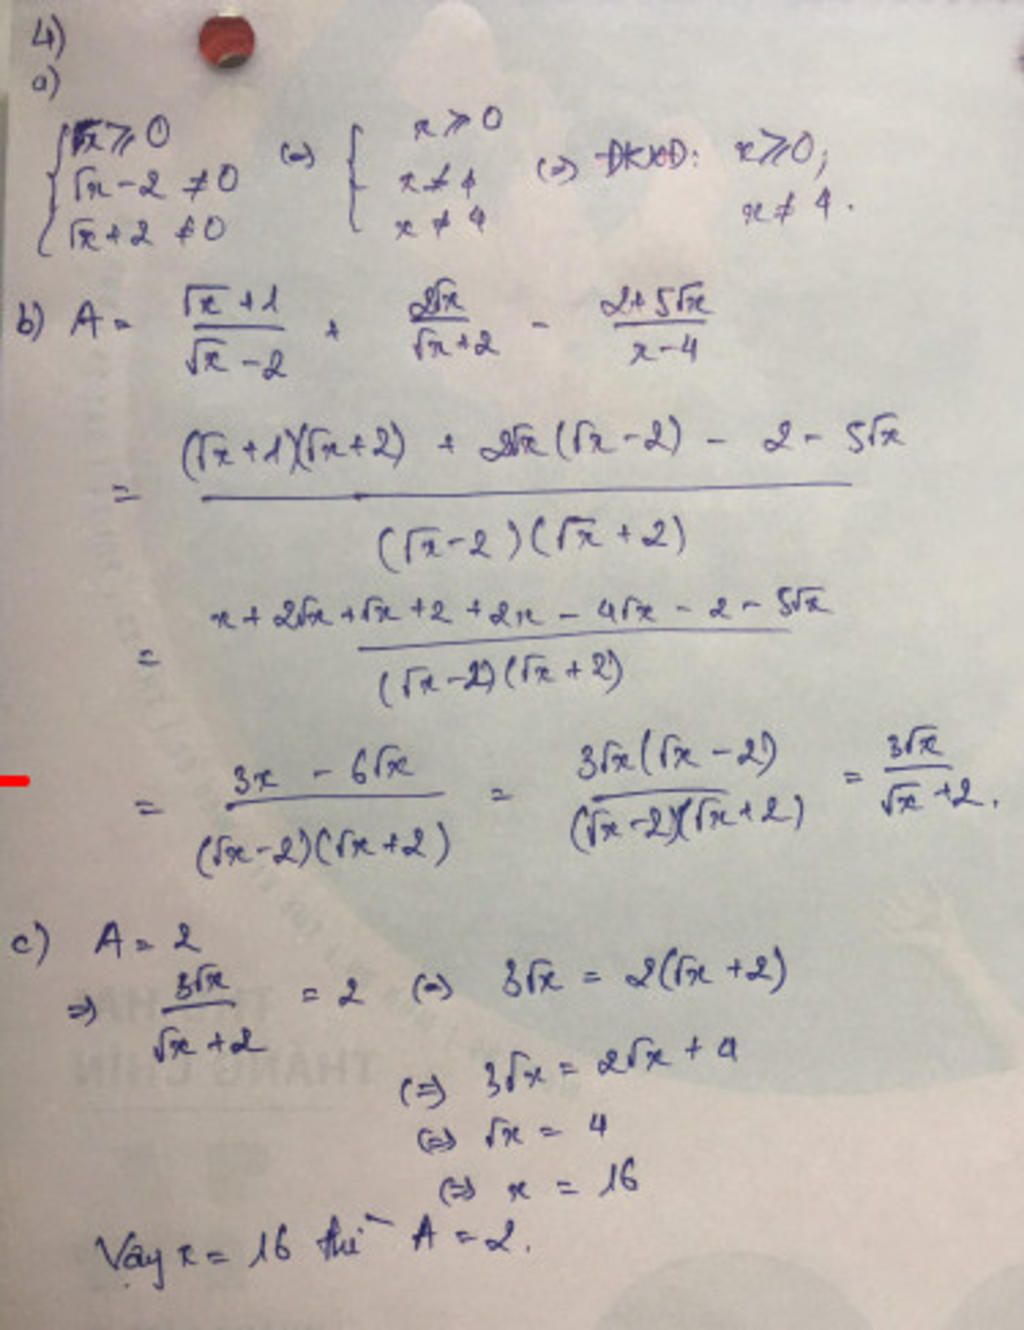 4)
a)
{ √x ≥ 0
√x - 2 ≠ 0
√x + 2 ≠ 0
(=) { x ≥ 0
x ≠ 4
x ≠ 4
(=) ĐKXĐ: x ≥ 0;
x ≠ 4.
b) A = (√x + 1)/(√x - 2) + 2√x/(√x + 2) - (2 + 5√x)/(x - 4)
= ((√x + 1)(√x + 2) + 2√x(√x - 2) - 2 - 5√x)/((√x - 2)(√x + 2))
= (x + 2√x + √x + 2 + 2x - 4√x - 2 - 5√x)/((√x - 2)(√x + 2))
= (3x - 6√x)/((√x - 2)(√x + 2)) = (3√x(√x - 2))/((√x - 2)(√x + 2)) = 3√x/(√x + 2).
c) A = 2
=> 3√x/(√x + 2) = 2 (=) 3√x = 2(√x + 2)
(=) 3√x = 2√x + 4
(=) √x = 4
(=) x = 16
Vậy x = 16 thì A = 2.